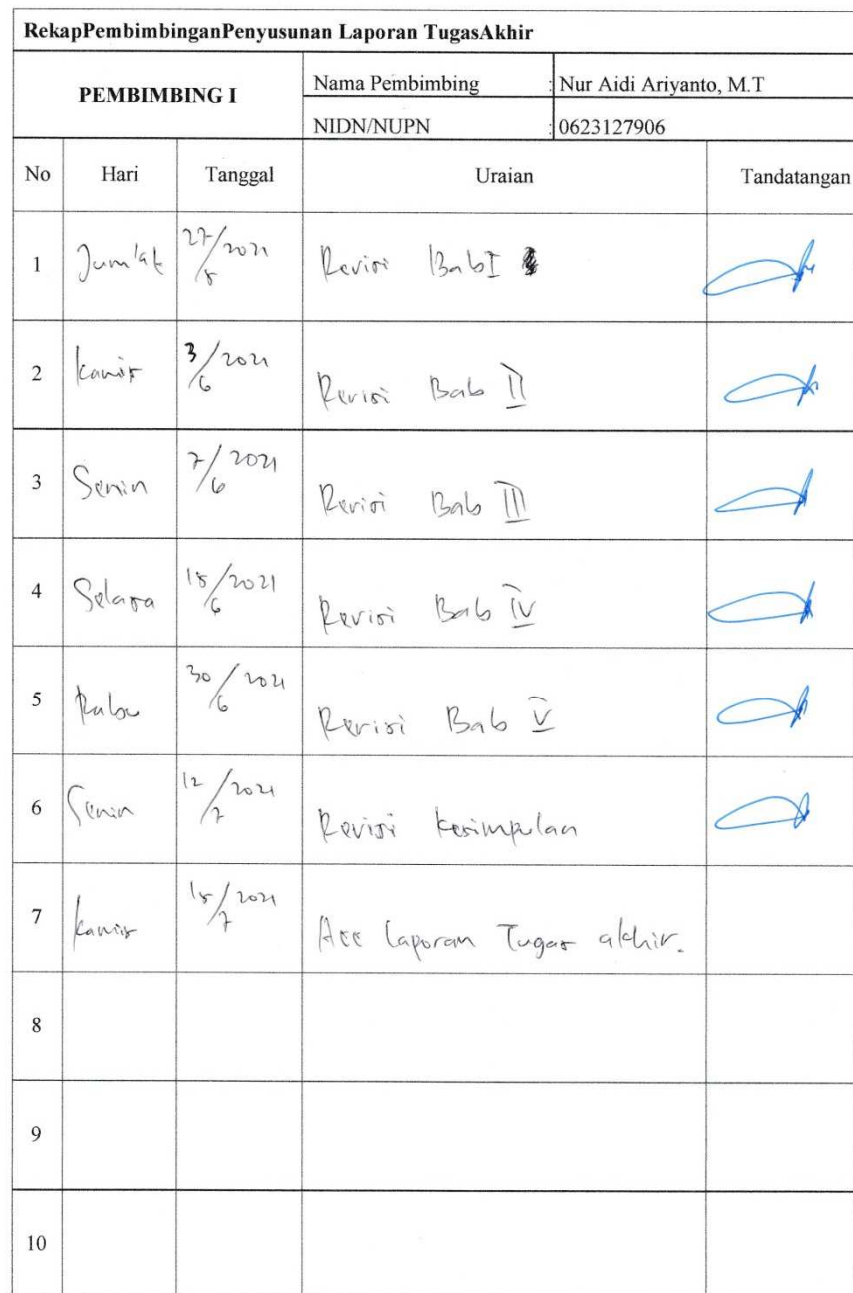 RekapPembimbinganPenyusunan Laporan TugasAkhir
PEMBIMBING I
Nama Pembimbing : Nur Aidi Ariyanto, M.T
NIDN/NUPN : 0623127906
No Hari Tanggal Uraian Tandatangan
1 Jum'at 27/5 2021 Revisi Bab I
2 Kamis 3/6 2021 Revisi Bab II
3 Senin 7/6 2021 Revisi Bab III
4 Selasa 15/6 2021 Revisi Bab IV
5 Rabu 30/6 2021 Revisi Bab V
6 Senin 12/7 2021 Revisi Kesimpulan
7 Kamis 15/7 2021 Acc Laporan Tugas akhir.
8
9
10